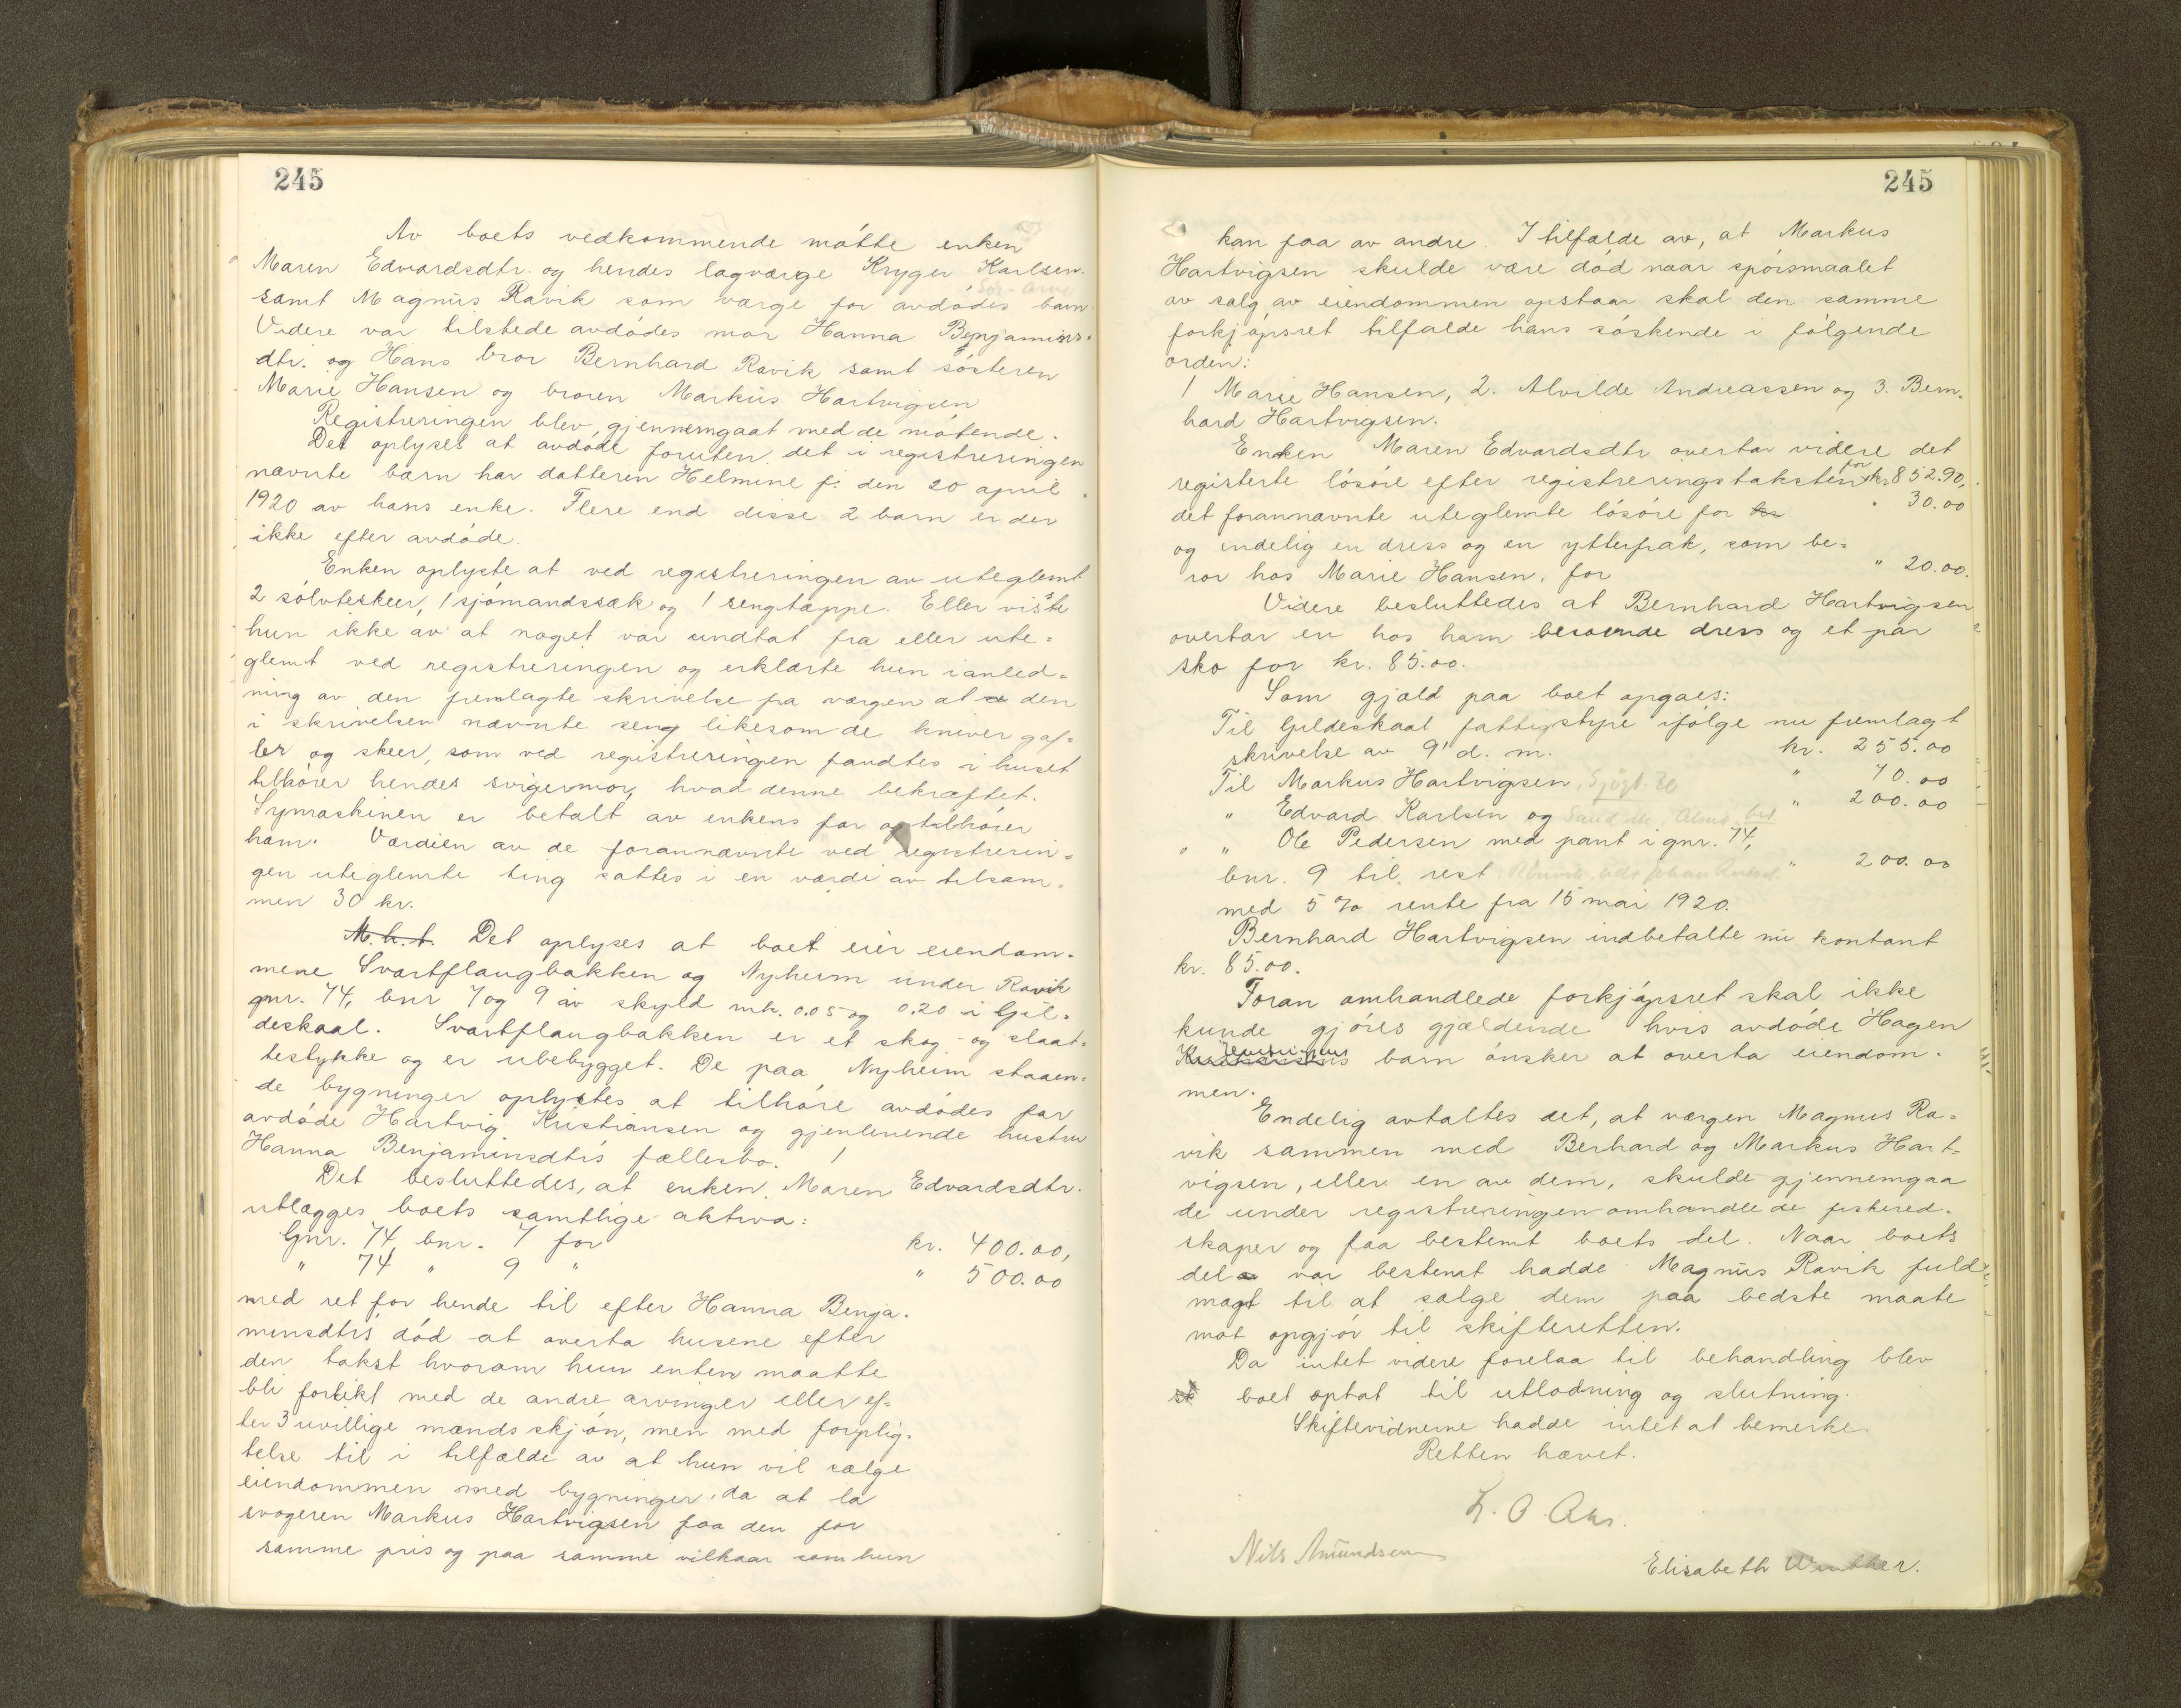 245
Av boets vedkommende møtte enken
Maren Edvardsdtr. og hendes lagværge Kryger Karlsen.
Sør-Arnø
samt Magnus Ravik som værge for avdødes barn.
Videre var tilstede avdødes mor Hanna Benjamins-
dtr. og Hans bror Bernhard Ravik samt søsteren
Marie Hansen og broren Markus Hartvigsen
Registreringen blev gjennemgaat med de møtende.
Det oplyses at avdøde foruten det i registreringen
nævnte barn har datteren Helmine f. den 20 april
1920 av hans enke. Flere end disse 2 barn er der
ikke efter avdøde.
Enken oplyste at ved registreringen av uteglemt
2 sølvteskeer, 1 sjømandssæk og 1 sengtæppe. Eller visste
hun ikke av at noget var undtat fra eller ute=
glemt ved registreringen og erklærte hun i anled=
ning av den fremlagte skrivelse fra værgen at den
i skrivelsen nævnte seng likesom de kniver gaf=
ler og skeer, som ved registreringen fandtes i huset
tilhører hendes svigermor, hvad denne bekræftet.
Symaskinen er betalt av enkens far og tilhører
ham. Værdien av de forannævnte ved registrerin=
gen uteglemte ting sattes i en værdi av tilsam=
men 30 kr.
M.h.t. Det oplyses at boet eier eiendom=
mene Svartflaugbakken og Nyheim under Ravik
gnr. 74, bnr 7 og 9 av skyld mk. 0.05 og 0.20 i Gil=
deskaal. Svartflaugbakken er et skog- og slaat=
testykke og er ubebygget. De paa Nyheim staaen=
de bygninger oplystes at tilhøre avdødes far
avdøde Hartvig Kristiansen og gjenlevende hustru
Hanna Benjaminsdtrs fællesbo.
Det besluttedes, at enken Maren Edvardsdtr.
utlægges boets samtlige aktiva:
Gnr. 74 bnr. 7 for kr. 400.00,
" 74 " 9 " " 500.00
med ret for hende til efter Hanna Benja=
minsdtrs død at overta husene efter
den takst hvorom hun enten maatte
bli forlikt med de andre arvinger eller ef=
ter 3 uvillige mænds skjøn, men med forplig=
telse til i tilfælde av at hun vil sælge
eiendommen med bygninger, da at la
svogeren Markus Hartvigsen faa den for
samme pris og paa samme vilkaar som hun
245
kan faa av andre. I tilfælde av, at Markus
Hartvigsen skulde være død naar spørsmaalet
av salg av eiendommen opstaar skal den samme
forkjøpsret tilfalde hans søskende i følgende
orden:
1 Marie Hansen, 2. Alvilde Andreassen og 3. Bern=
hard Hartvigsen.
Enken Maren Edvardsdtr overtar videre det
registerte løsøre efter registreringstaksten for kr 852.90,
det forannævnte uteglemte løsøre for kr " 30.00
og endelig en dress og en ytterfrak, som be=
ror hos Marie Hansen, for " 20.00.
Videre besluttedes at Bernhard Hartvigsen
overtar en hos ham beroende dress og et par
sko for kr. 85.00.
Som gjæld paa boet opgaes:
Til Gildeskaal fattigstyre ifølge nu fremlagt
skrivelse av 9' d. m. kr. 255.00
Til Markus Hartvigsen, " 70.00
" Edvard Karlsen og " 200.00
" Ole Pedersen med pant i gnr. 74,
bnr. 9 til rest " 200.00
med 5 % rente fra 15 mai 1920.
Bernhard Hartvigsen indbetalte nu kontant
kr. 85.00.
Foran omhandlede forkjøpsret skal ikke
kunde gjøres gjældende hvis avdøde Hagen
barn ønsker at overta eiendom=
men.
Endelig avtaltes det, at værgen Magnus Ra=
vik sammen med Berhard og Markus Hart=
vigsen, eller en av dem, skulde gjennemgaa
de under registreringen omhandlede fiskered=
skaper og faa bestemt boets del. Naar boets
del var bestemt hadde Magnus Ravik fuld
magt til at sælge dem paa bedste maate
mot opgjør til skifteretten.
Da intet videre forelaa til behandling blev
sk boet optat til utlodning og slutning.
Skiftevidnerne hadde intet at bemerke.
Retten hævet.
Nils Amundsen
Elisabeth Winther.